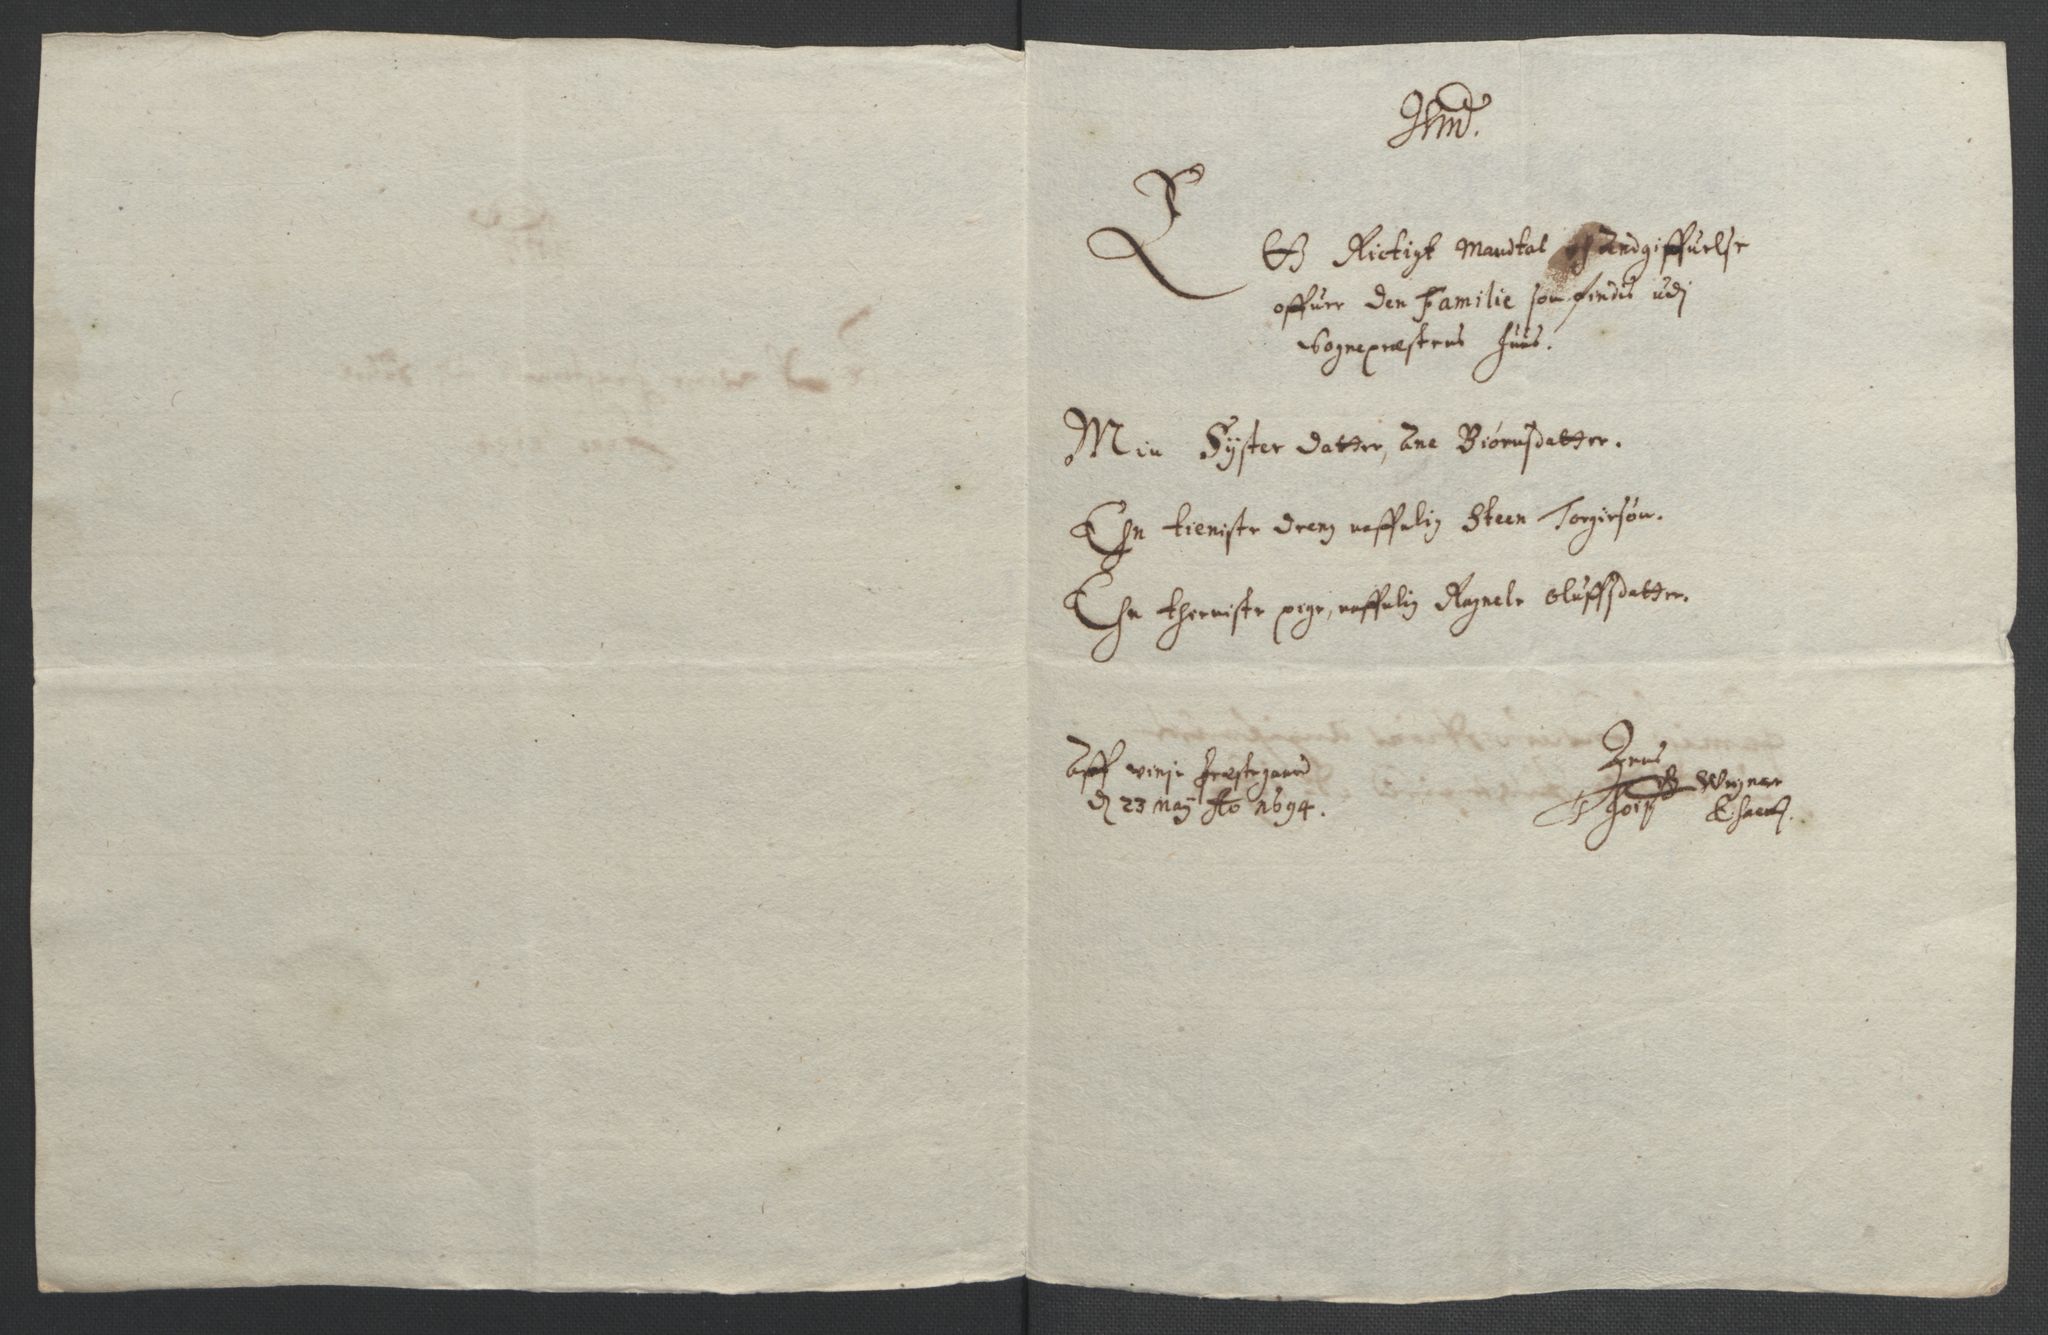 Et Rictigt Mandtal och Andgiffuelse
offuer den Familie som findis udj
Sognepræstens huus.
Min Syster datter, Ane Biørnsdatter.
En tieniste dreng naffnlig Steen Torgirsøn.
En thieniste pige, naffnlig Ragnele Oluffsdatter.
Aff vinje Præstegaard
d 23 Maij Ao 1694.
Jens